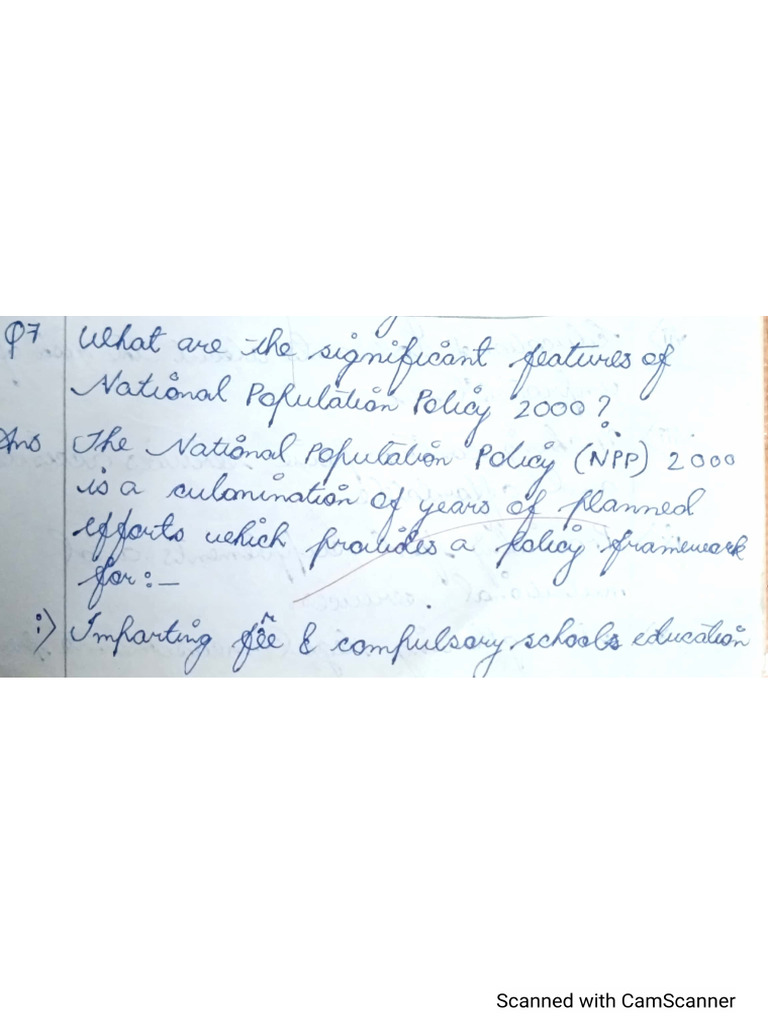 Q7 What are the significant features of
National Population Policy 2000?
Ans The National Population Policy (NPP) 2000
is a culomination of years of planned
efforts which provides a policy framework
for:-
i) Imparting free & compulsory schools education
Scanned with CamScanner